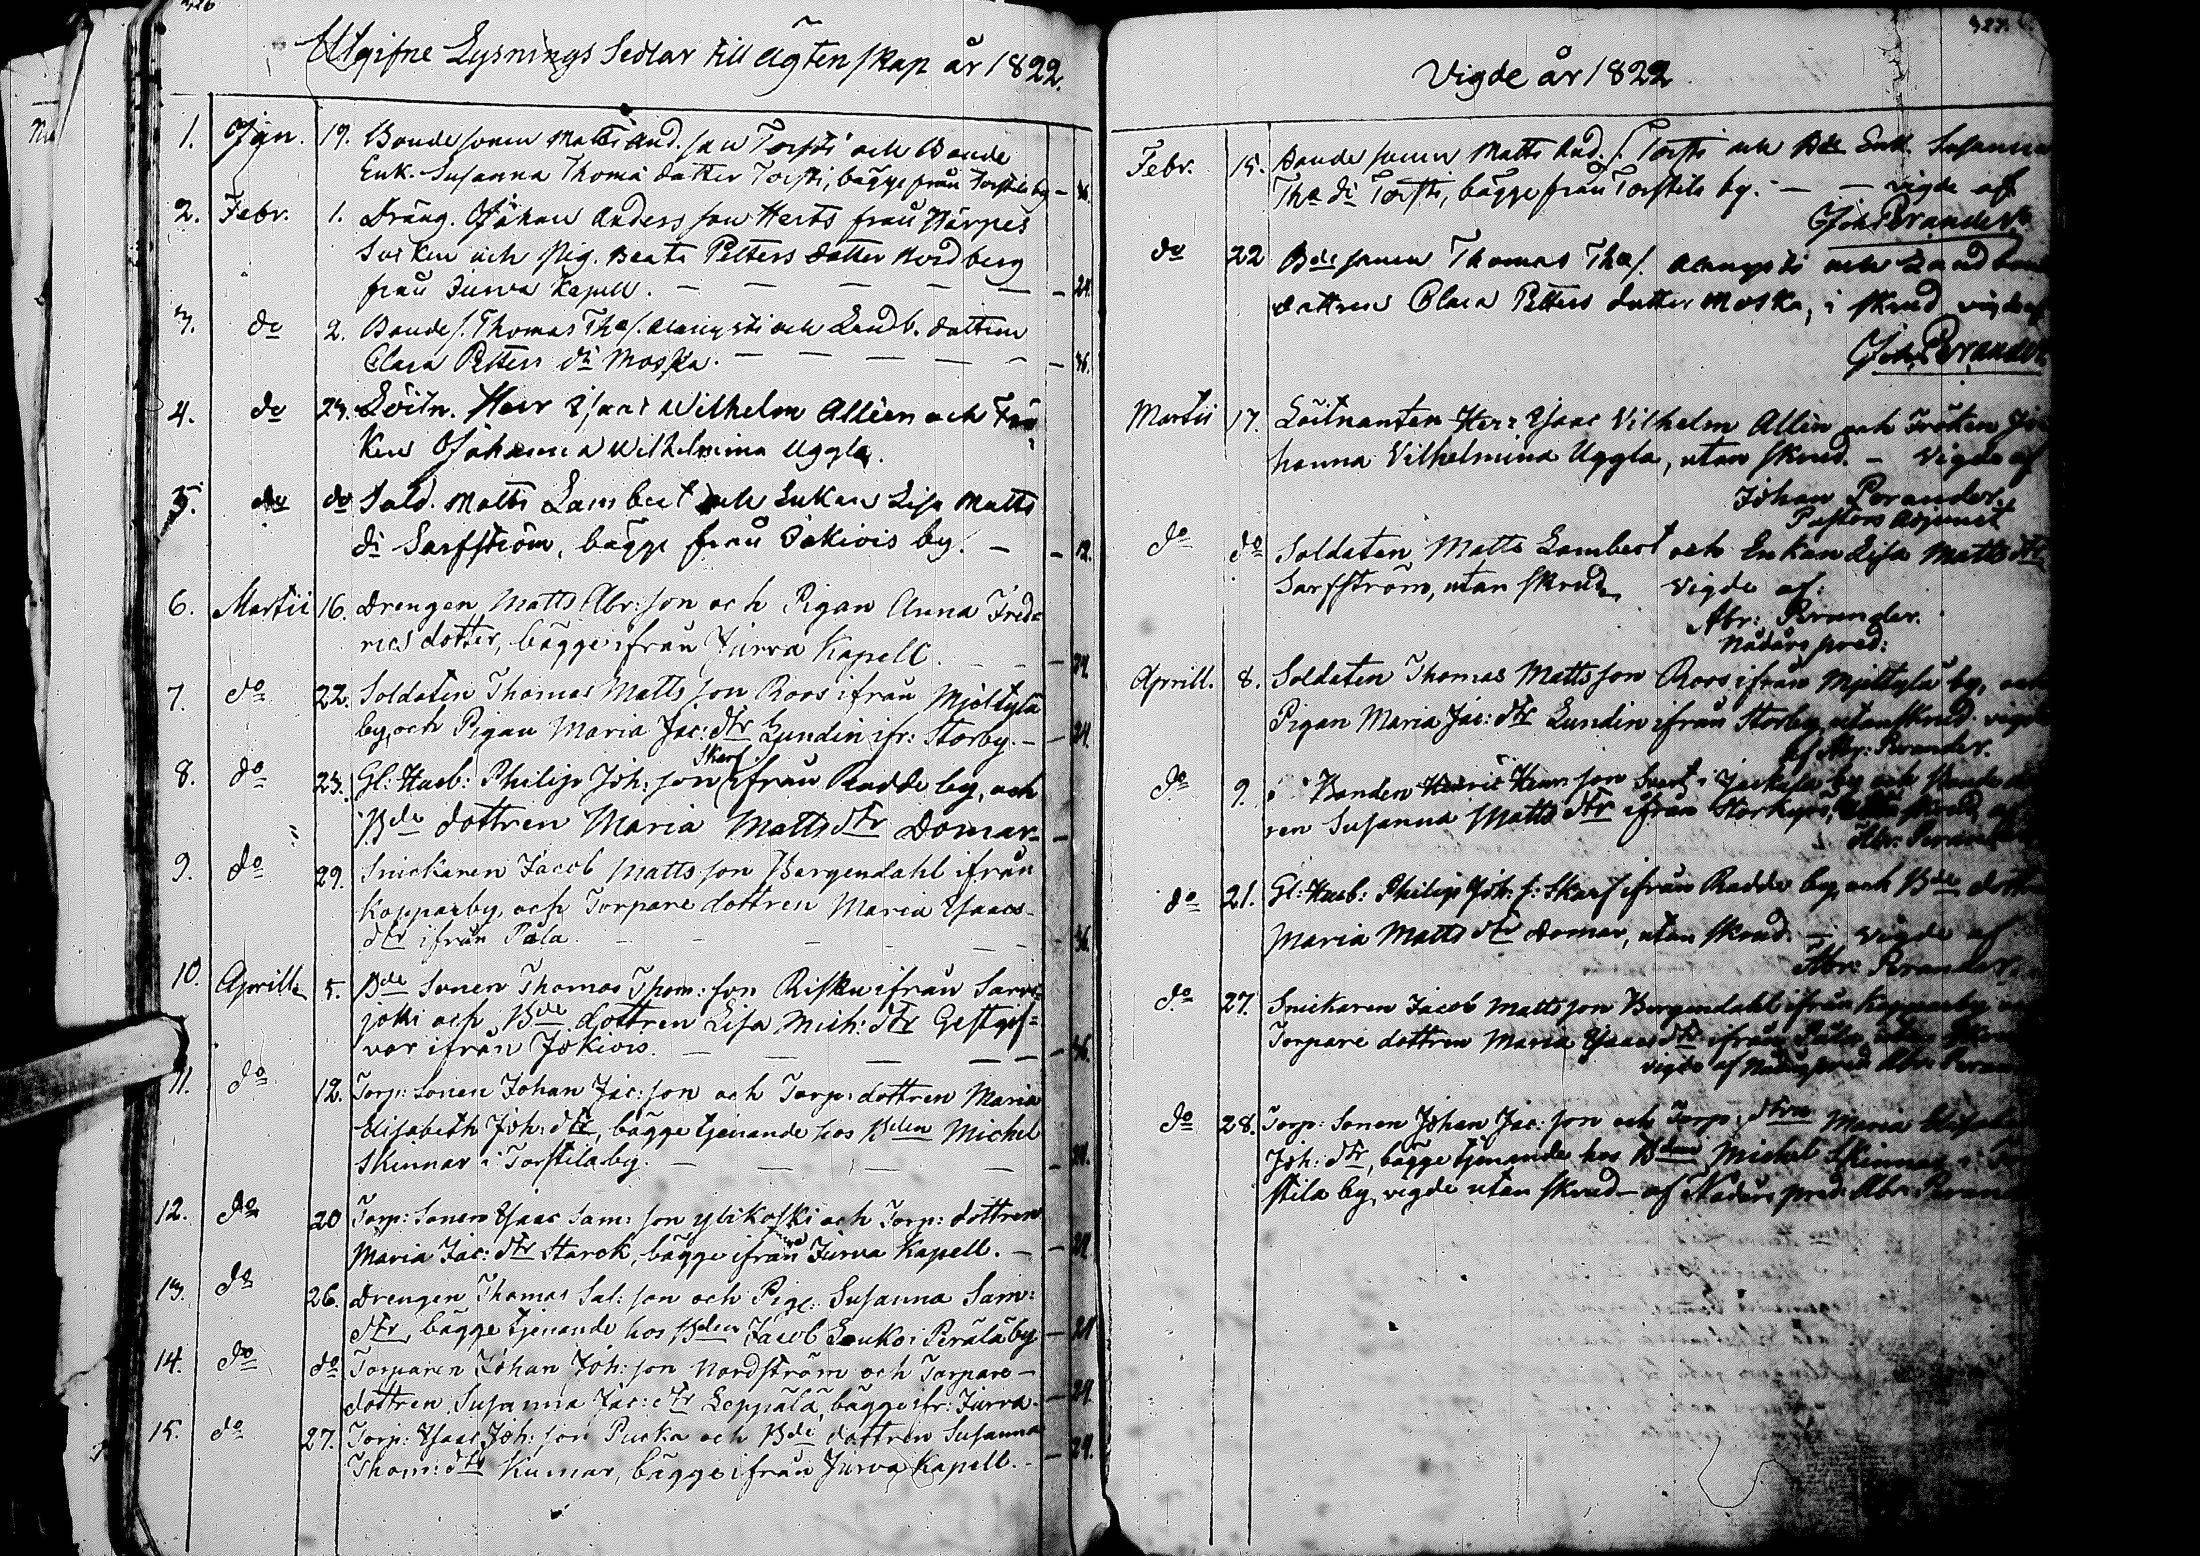 Utgifne Lysnings Sedlar till ägtenskap år 1822.
1. Jan. 19. Bonde sonen Matts And. son Torsti och Bonde
Enk. Susanna Thomæ dotter Torsti, bägge från Torstila by — 36.
2. Febr. 1. Dräng. Johan Anders son Herts från Närpes
Socken och Pig. Beata Petters dotter Nordberg
från Jurva Kapell. — — — — — 24.
3. do 2. Bonde s. Thomas Tho s. och Landb. dottren
Clara Petters dr Moska. — — — — — 36.
4. do 23. Löitn. Herr Isaac Wilhelm Allèen och Frö
ken Johanna Wilhelmina Uggla.
5. do do Sold. Matts Lambert och Enkan Lisa Matts
dr Sarfström, bägge från Jokiois by. — — 12.
6. Martii 16. Drengen Matts Abr: son och Pigan Anna Fred=
rics dotter, bägge ifrån Jurva Kapell. — — 24.
7. do 22. Soldaten Thomas Matts son Roos ifrån Mjöltylä
by, och Pigan Maria Jac: dtr Lundin ifr: Storby. — — 24.
Skarf
8. do 23. Gl: Husb: Philip Joh: son ifrån Radde by, och
Bde dottren Maria Matts dtr Domar= —
9. do 29. Snickaren Jacob Matts son Bergendahl ifrån
Kopparby, och Torpare dottren Maria Isaacs-
dtr ifrån Påla. — — — — — 36.
10. Aprill 5. Bde Sonen Thomas Thom: son Risku ifrån Sarvi-
joki och Bde dottren Lisa Mich: dtr Gestgif=
var ifrån Jokiois. — — — — — 36.
11. do 12. Torp: Sonen Johan Jac: son och Torp: dottren Maria
Elisabeth Joh: dtr, bägge tjenande hos Bden Michel
Skinnar i Torstila by. — — — — — 24.
12. do 20 Torp: Sonen Isaac Sam: son Ylikoski och Torp: dottren
Maria Jac: dtr Starck, bägge ifrån Jurva Kapell. — — 24.
13. do 26. Drengen Thomas Sal: son och Pig: Susanna Sam:
dtr, bägge tjenande hos Bden Jacob Louko i Perälä by — 24
14. do do Torparen Johan Joh: son Nordström och Torpare-
dottren Susanna Jac: dtr Leppälä, bägge ifr: Jurva. — 24.
15. do 27. Torp: Isaac Joh: son Pucka och Bde dottren Susanna
Thom: dtr Kumar, bägge ifrån Jurva Kapell. — — 24.
427.
Vigde år 1822
Febr. 15. Bonde sonen Matts And. s. Torsti och Bde Enk. Susanna
Tho dr Torsti, bägge från Torstila by. — — vigde af
Joh Perander
do 22 Bde sonen Thomas Tho s. och Landbond
dottren Clara Petters dotter Moska, i skrud vigde af
Joh. Perander
Martii 17. Löitnanten Herr Isaac Vilhelm Allèn och Fröken Jo
hanna Vilhelmina Uggla, utan skrud. — Vigde af
Johan Perander.
Pastors Adjunct
do do Soldaten Matts Lambert och Enkan Lisa Matts dtr
Sarfström, utan skrud. Vigde af:
Abr: Perander.
Nådårs pred:
Aprill. 8. Soldaten Thomas Matts son Roos ifrån Mjöltylä by, och
Pigan Maria Jac: dtr Lundin ifrån Storby utan skrud. vigde
af Abr: Perander.
do 9. Bonden Henric Henr: son i by och Bonde dott
ren Susanna Matts dtr ifrån Storkyro, skrud, af
Abr: Perander
do 21. Gl: Husb: Philip Joh: s: Skarf ifrån Radde by och Bde dottr
Maria Matts dtr Domar, utan skrud. — Vigde af
Abr: Perander.
do 27. Snickaren Jacob Matts son Bergendahl ifrån Kopparby och
Torpare dottren Maria Isaacs dtr ifrån Påla, utan skrud
vigde af Nådårs pred Abr: Peran
do 28. Torp: Sonen Johan Jac: son och Torp: dtren Maria Elisabet
Joh: dtr, bägge tjenande hos Bdens Michel Skinnar i Tor
stila by, vigde utan skrud — af Nådårs pred: Abr: Peran